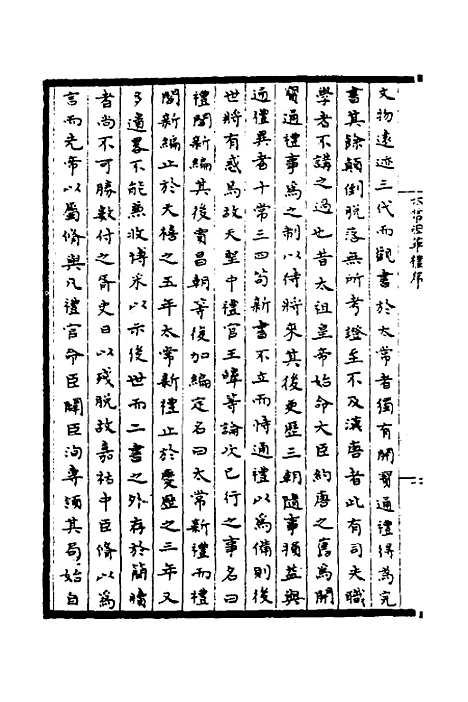 文物遠迹三代而觀書於太常者獨有開寳通禮得為完
書其餘顛倒脱落無所考證至不及漢唐者此有司失職
學者不講之過也昔太祖皇帝始命大臣約唐之舊為開
寳通禮事為之制以待將來其後更歴三朝隨事損益與
通禮異者十常三四苟新書不立而恃通禮以為備則後
世將有惑焉故天聖中禮官王皥等論次已行之事名曰
禮閣新編其後賈昌朝等復加編定名曰太常新禮而禮
閣新編止於天禧之五年太常新禮止於慶歴之三年又
多遺畧不能兼收博采以示後世而二書之外存於簡牘
者尚不可勝數付之胥史日以殘脱故嘉祐中臣脩以為
言而先帝以屬脩與凡禮官命臣闢臣洵專領其局始自
太常因革禮序
一